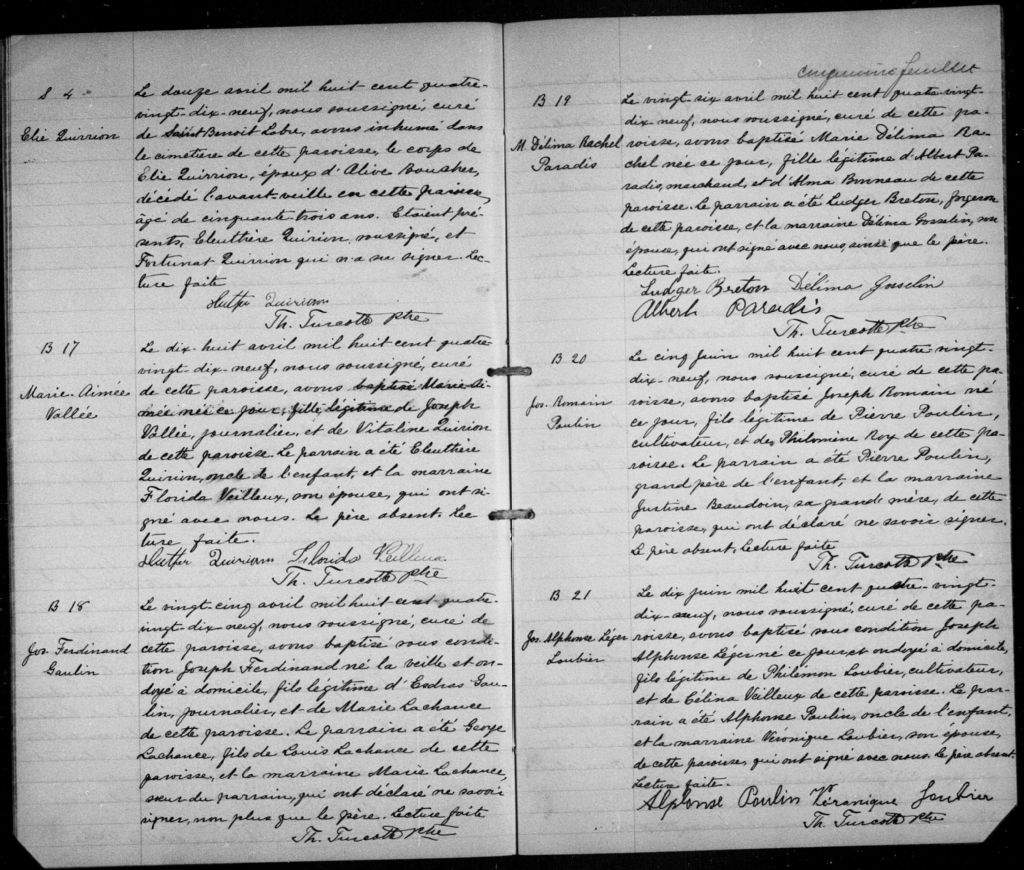 S 4
Elie Quirrion
Le douze avril mil huit cent quatre-
vingt-dix-neuf, nous soussigné, curé
de Saint Benoit Labre, avons inhumé dans
le cimetière de cette paroisse, le corps de
Elie Quirrion, époux d'Alive Boucher,
décédé l'avant-veille en cette paroisse,
âgé de cinquante-trois ans. Etaient pré-
sents, Eleuthère Quirion, soussigné, et
Fortunat Quirrion qui n'a su signer. Lec-
ture faite
Quirion
Th. Turcotte ptre
B 17
Marie-Aimée
Vallée
Le dix-huit avril mil huit cent quatre
vingt-dix-neuf, nous soussigné, curé
de cette paroisse, avons baptisé Marie-Ai-
mée née ce jour, fille légitime de Joseph
Vallée, journalier, et de Vitaline Quirion
de cette paroisse. Le parrain a été Eleuthère
Quirion, oncle de l'enfant, et la marraine
Florida Veilleux, son épouse, qui ont si-
gné avec nous. Le père absent. Lec-
ture faite.
Quirion Florida Veilleux
Th. Turcotte ptre
B 18
Jos. Ferdinand
Gaulin
Le vingt-cinq avril mil huit cent quatre-
vingt-dix-neuf, nous soussigné, curé de
cette paroisse, avons baptisé sous condi-
tion Joseph Ferdinand né la veille et on-
doyé à domicile, fils légitime d'Esdras Gau-
lin, journalier, et de Marie Lachance
de cette paroisse. Le parrain a été George
Lachance, fils de Louis Lachance de cette
paroisse, et la marraine Marie Lachance,
sœur du parrain, qui ont déclaré ne savoir
signer, non plus que le père. Lecture faite
Th. Turcotte ptre
cinquième feuillet
B 19
M. Délima Rachel
Paradis
Le vingt six avril mil huit cent quatre vingt-
dix-neuf, nous soussigné, curé de cette pa-
roisse, avons baptisé Marie Délima Ra-
chel née ce jour, fille légitime d'Albert Pa-
radis, marchand, et d'Alma Bruneau de cette
paroisse. Le parrain a été Ludger Breton, forgeron
de cette paroisse, et la marraine Délima Gosselin, son
épouse, qui ont signé avec nous, ainsi que le père.
Lecture faite.
Ludger Breton Délima Gosselin
Albert Paradis
Th. Turcotte ptre
B 20
Jos. Romain
Poulin
Le cinq juin mil huit cent quatre vingt-
dix-neuf, nous soussigné, curé de cette pa-
roisse, avons baptisé Joseph Romain né
ce jour, fils légitime de Pierre Poulin,
cultivateur, et de Philomène Roy de cette pa-
roisse. Le parrain a été Pierre Poulin,
grand père de l'enfant, et la marraine
Justine Beaudoin, sa grand mère, de cette
paroisse, qui ont déclaré ne savoir signer.
Le père absent, Lecture faite
Th. Turcotte Ptre
B 21
Jos. Alphonse Léger
Loubier
Le dix juin mil huit cent quatre-vingt-
dix-neuf, nous soussigné, curé de cette pa-
roisse, avons baptisé sous condition Joseph
Alphonse Léger né ce jour, et ondoyé à domicile,
fils légitime de Philémon Loubier, cultivateur,
et de Célina Veilleux de cette paroisse. Le par-
rain a été Alphonse Poulin, oncle de l'enfant,
et la marraine Véronique Loubier, son épouse,
de cette paroisse, qui ont signé avec nous. Le père absent.
Lecture faite.
Alphonse Poulin Véronique Loubier
Th. Turcotte ptre